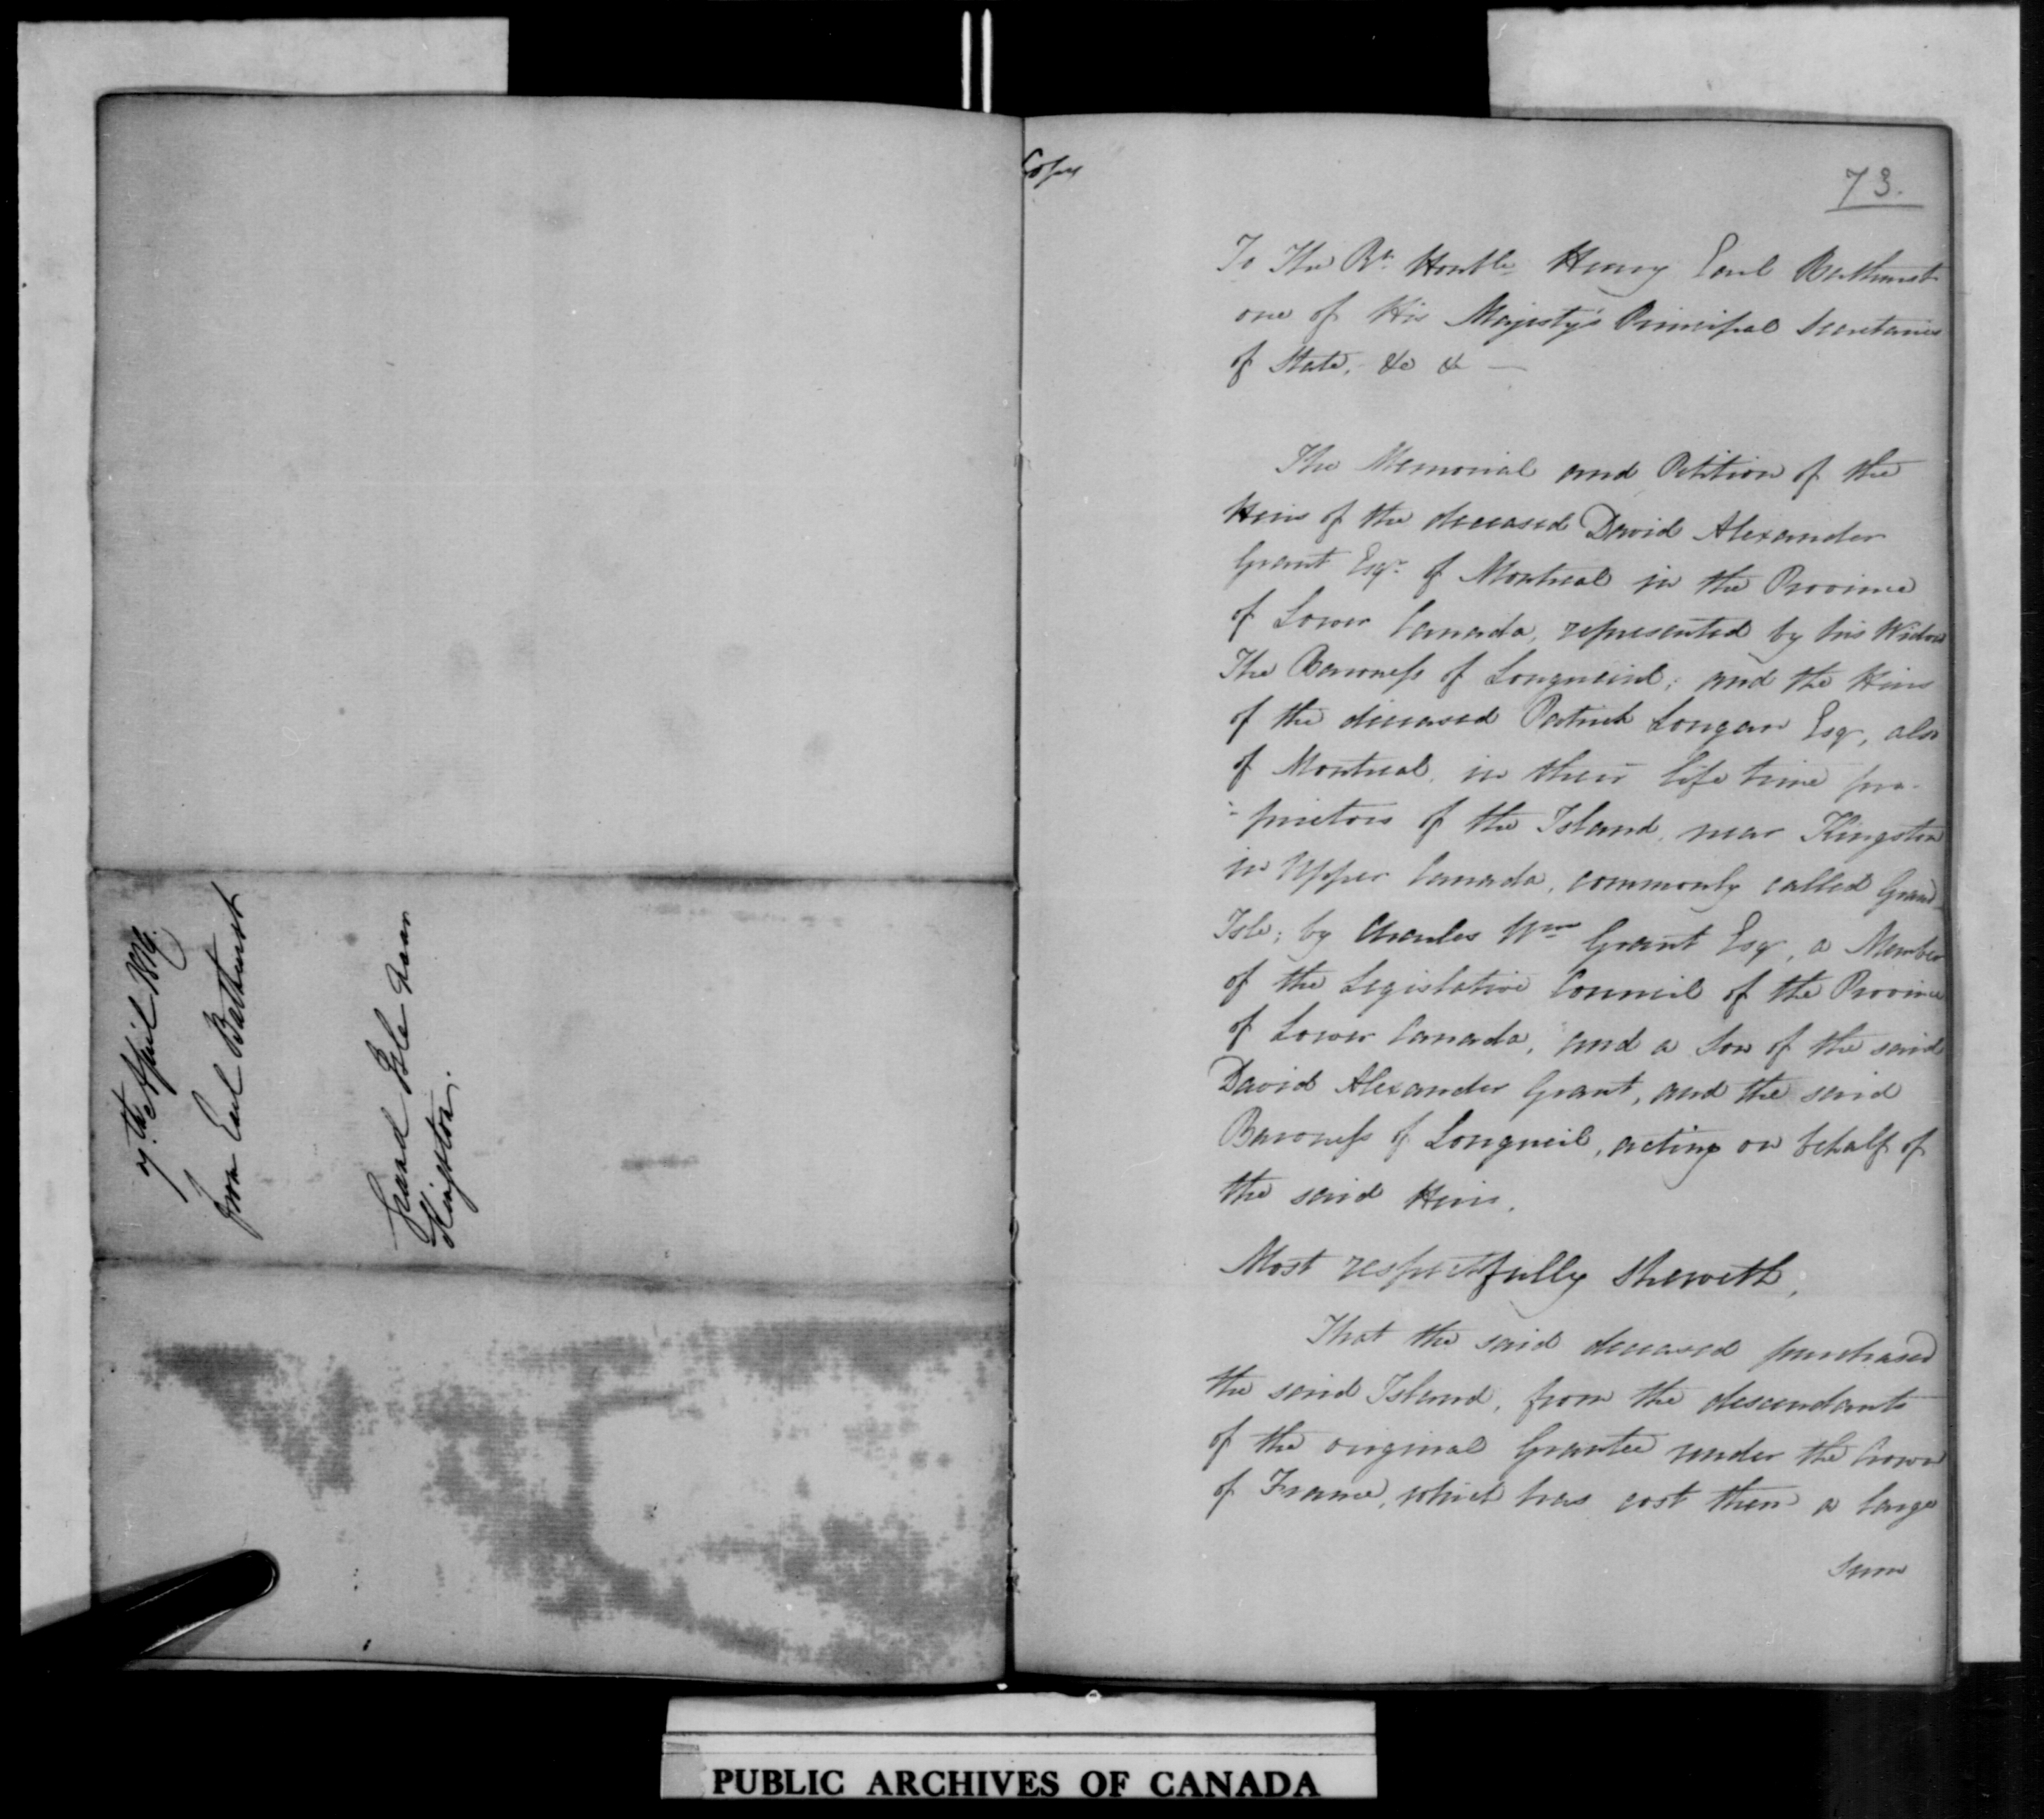 7th April 1816.
from Earl Bathurst
Grand Isle near
Kingston.
Copy
73.
To The Rt. Honble Henry Earl Bathurst
one of His Majesty's Principal Secretaries
of State, &c &c —
The Memorial and Petition of the
Heirs of the deceased David Alexander
Grant Esqr. of Montreal in the Province
of Lower Canada, represented by his Widow
The Baroness of Longueuil; and the Heirs
of the deceased Patrick Langan Esqr, also
of Montreal, in their life time pro-
-prietors of the Island, near Kingston
in Upper Canada, commonly called Grand
Isle; by Charles Wm Grant Esqr, a Member
of the Legislative Council of the Province
of Lower Canada, and a Son of the said
David Alexander Grant, and the said
Baroness of Longueuil, acting on behalf of
the said Heirs.
Most respectfully sheweth,
That the said deceased purchased
the said Island, from the descendants
of the original Grantee under the Crown
of France, which has cost them a large
Sum
PUBLIC ARCHIVES OF CANADA